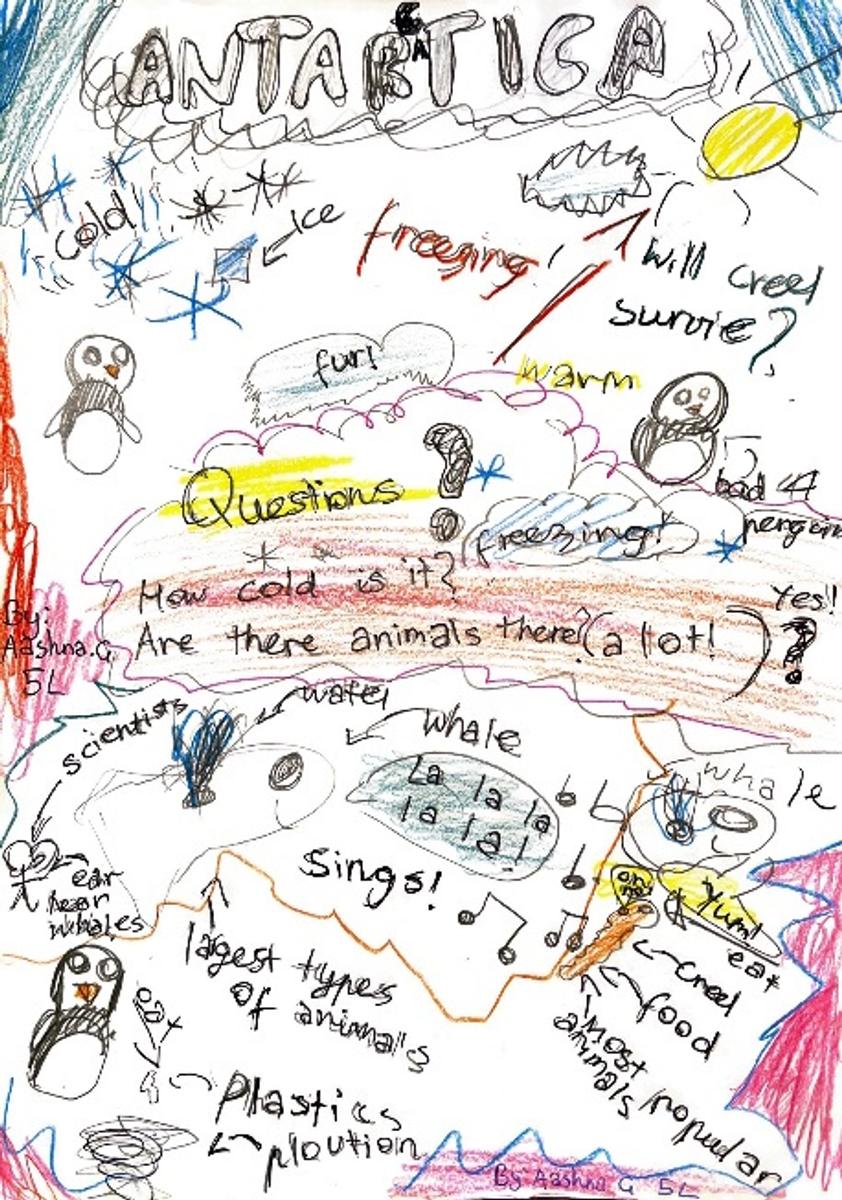 ANTARCTICA
cold!!
ice
freezing!
will creel
survie?
fur!
warm
Questions ?
bad
penguin
freezing!
How cold is it?
Yes!!
Are there animals there? (a lot! ) ?
By:
Aashna.G
5L
scientists
water
whale
whale
La la la
la la!
Sings!
ear
hear
whales
oh
no!
Yum!
eat
creel
food
largest types
of animals
Most popular
animals
eat
Plastics
ploution
By: Aashna G 5L